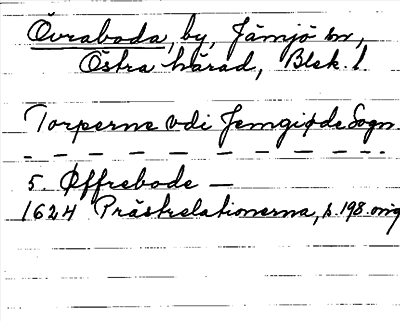 Övraboda, by, Jämjö sn,
Östra härad, Blek. l.
Torperne vdi JemgiødeSogn
5. Øffrebode —
1624 Prästrelationerna, s. 198. orig